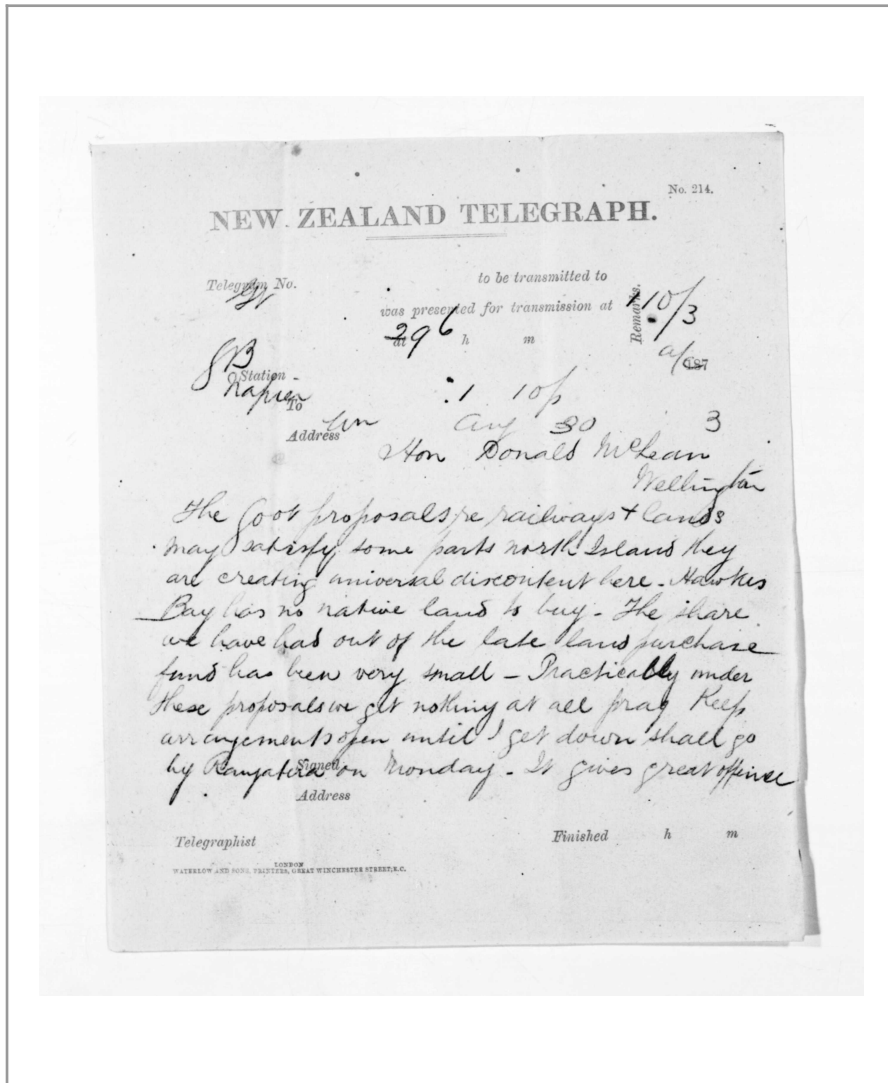 No. 214.
NEW ZEALAND TELEGRAPH.
Telegram No.
to be transmitted to
was presented for transmission at
Remarks.
110/3
at 296 h m
187
Station
Napier
:1 10p
To
Aug 30 3
Address
Hon Donald McLean
Wellington
The Govt proposals re railways + lands
may satisfy some parts north Island they
are creating universal discontent here - Hawkes
Bay has no native land to buy - The share
we have had out of the late land purchase
fund has been very small - Practically under
these proposals we get nothing at all pray Keep
arrangements open until I get down shall go
by Rangatira on Monday - It gives great offence
Signed
Address
Telegraphist Finished h m
LONDON
WATERLOW AND SONS, PRINTERS, GREAT WINCHESTER STREET, E.C.